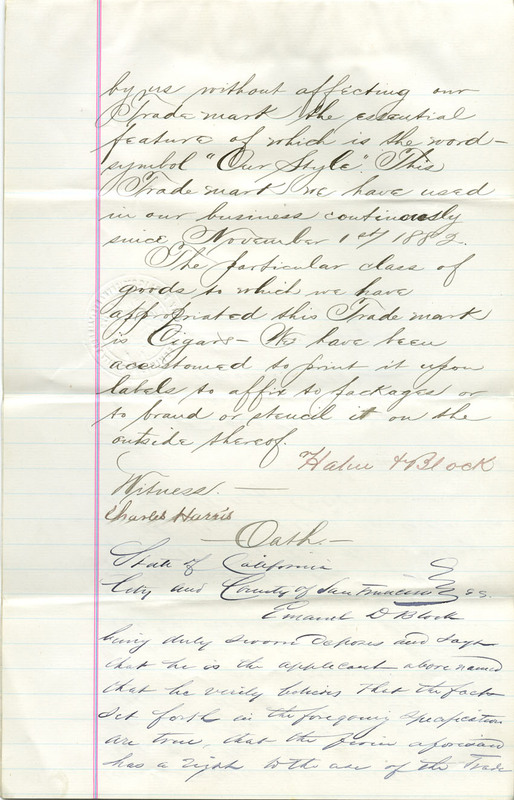 by us without affecting our
Trade mark the essential
feature of which is the word-
symbol "Our Style". This
Trade mark we have used
in our business continuously
since November 1st 1882.
The particular class of
goods to which we have
appropriated this Trade mark
is Cigars - We have been
accustomed to print it upon
labels to affix to packages or
to brand or stencil it on the
outside thereof.
Hahn & Block
Witness. —
Charles Harris
— Oath —
State of California
City and County of San Francisco ss.
Emanel D Block
being duly sworn deposes and says
that he is the applicant above named
that he verily believes that the facts
set forth in the foregoing specification
are true, that the firm aforesaid
has a right to the use of the Trade